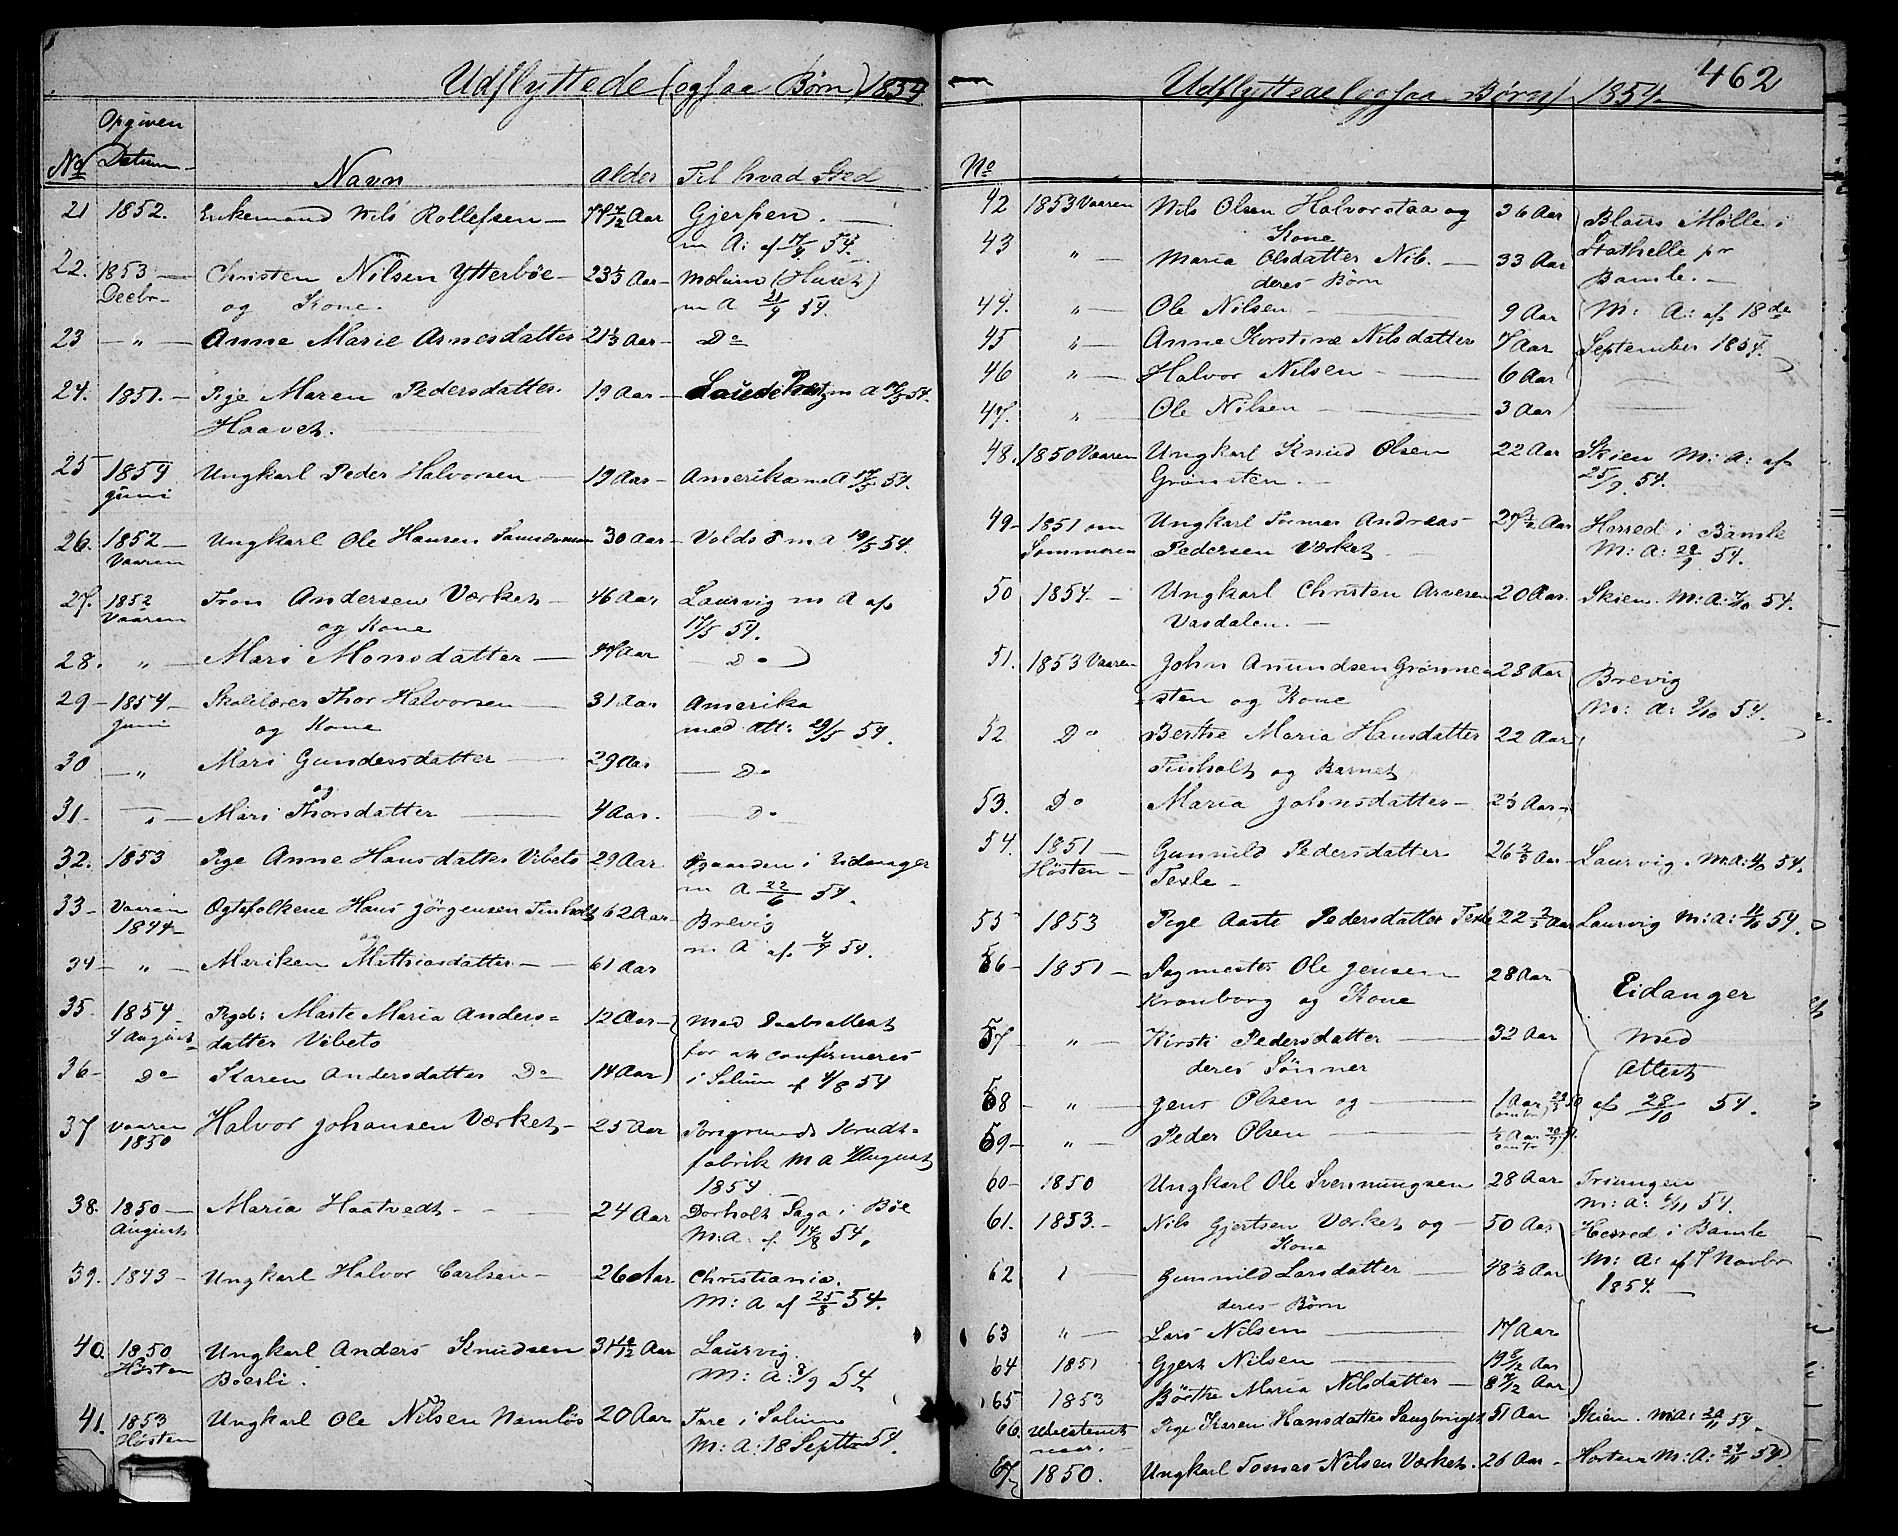 Udflyttede (ogsaa Børn) 1854
Opgiven
No Datum Navn Alder Til hvad Sted
21 1852. Enkemand Nils Rollefsen Aar Gjerpen.
m A: af 54.
22. 1853 Christen Nilsen Ytterbøe 23 1/3 Aar Melum
Decbr og Kone. m A 54.
23 " Anne Marie Arnesdatter 21 1/3 Aar Do
24. 1851. Pige Maren Pedersdatter 19 Aar m A 17/5 54.
Haavet.
25 1854 Ungkarl Peder Halvorsen 19 Aar Amerika m A 17/5 54.
Juni
26. 1852 Ungkarl Ole Hansen 30 Aar m A 19/5 54.
Vaaren
27. 1852 Tron Andersen Værket 46 Aar Laurvig m A af
Vaaren og Kone 17/5 54.
28. " Mari Monsdatter Aar Do
29 1854 Skolelærer Thor Halvorsen 31 Aar Amerika
Juni og Kone med Att: 29/5 54.
30 " Mari Gundersdatter 29 Aar Do
og
31 " Mari Thorsdatter 4 Aar. Do
32. 1853 Pige Anne Hansdatter Vibeto 29 Aar i Eidanger
m A 22/6 54.
33 Vaaren Ægtefolkene Hans Jørgensen Tinholt 62 Aar Brevig
1844 og m A af 54.
34 " Mariken Mathiasdatter 61 Aar
35. 1854 Pige: Marte Maria Anders= 12 Aar med Daabsattest
4 August datter Vibeto for at confirmeres
36 Do Karen Andersdatter Do 14 Aar i Solum af 4/8 54
37 Vaaren Halvor Johansen Værket 25 Aar Porsgrunds Krudt=
1850 fabrik m A August
1854
38. 1850 Maria Haatvedt 24 Aar Dorholt Saga i Bøe
August M: A: af 14/8 54.
39. 1843 Ungkarl Halvor Carlsen 26 Aar Christiania.
M: A af 25/8 54.
40. 1850 Ungkarl Anders Knudsen 31 Aar Laurvig.
Høsten Bøerli. M: A: 8/9 54
41. 1853 Ungkarl Ole Nilsen Namløs 20 Aar i Solum
Høsten M: A: 18 Septbr 54.
462
Udflyttede (ogsaa Børn) 1854.
No
42 1853 Vaaren Nils Olsen Halvorstaa og 36 Aar Blairs Mølle i
Kone Stathelle pr
43 " Maria Olsdatter Nib. 33 Aar Bamle.
deres Børn
44. " Ole Nilsen 9 Aar M: A: af 18de
45 " Anne Kirstine Nilsdatter 7 Aar September 1854.
46 " Halvor Nilsen 6 Aar
47. " Ole Nilsen 3 Aar
48. 1850 Vaaren Ungkarl Knud Olsen 22 Aar Skien M: A: af
Grønsten. 25/9. 54.
49 1851 om Ungkarl Tomas Andreas Aar Herred i Bamle
Sommeren Pedersen Værket M: A: 54.
50 1854. Ungkarl Christen Arvesen 20 Aar. Skien. M: A: 54.
Vasdalen.
51. 1853 Vaaren John Amundsen Grønne= 28 Aar Brevig
sten og Kone M: A: 9/10 54.
52 Do Berthe Maria Hansdatter 22 Aar
Tinholt og Barnet
53. Do Maria Johnsdatter Aar
54. 1851 Gunnild Pedersdatter 26 2/3 Aar Laurvig. M: A: 54.
Høsten Texle
55 1853 Pige Aaste Pedersdatter Texle 22 2/3 Aar Laurvig M: A: 54.
56 1851 Pagmester Ole Jensen 28 Aar Eidanger
Kronborg og Kone
57 " Kirsti Pedersdatter 32 Aar med
deres Sønner Attest
58 " Jens Olsen og 1 Aar af 28/10 54.
59 " Peder Olsen 1/2 Aar
60 1850 Ungkarl Ole Svennungsen 28 Aar Triangen
M: A: 54.
61. 1853. Nils Gjertsen Værket og 50 Aar Herred i Bamle
Kone M: A: af 7 Novbr
62 Gunnild Larsdatter 48 1/2 Aar 1854.
deres Børn
63 " Lars Nilsen 17 Aar
64 1851 Gjert Nilsen Aar
65 1853 Børthe Maria Nilsdatter 8 Aar
66 Pige Karen Hansdatter 51 Aar Skien. M: A: 54.
67 1850. Ungkarl Tomas Nilsen Værket. 26 Aar Horten M: A: 54